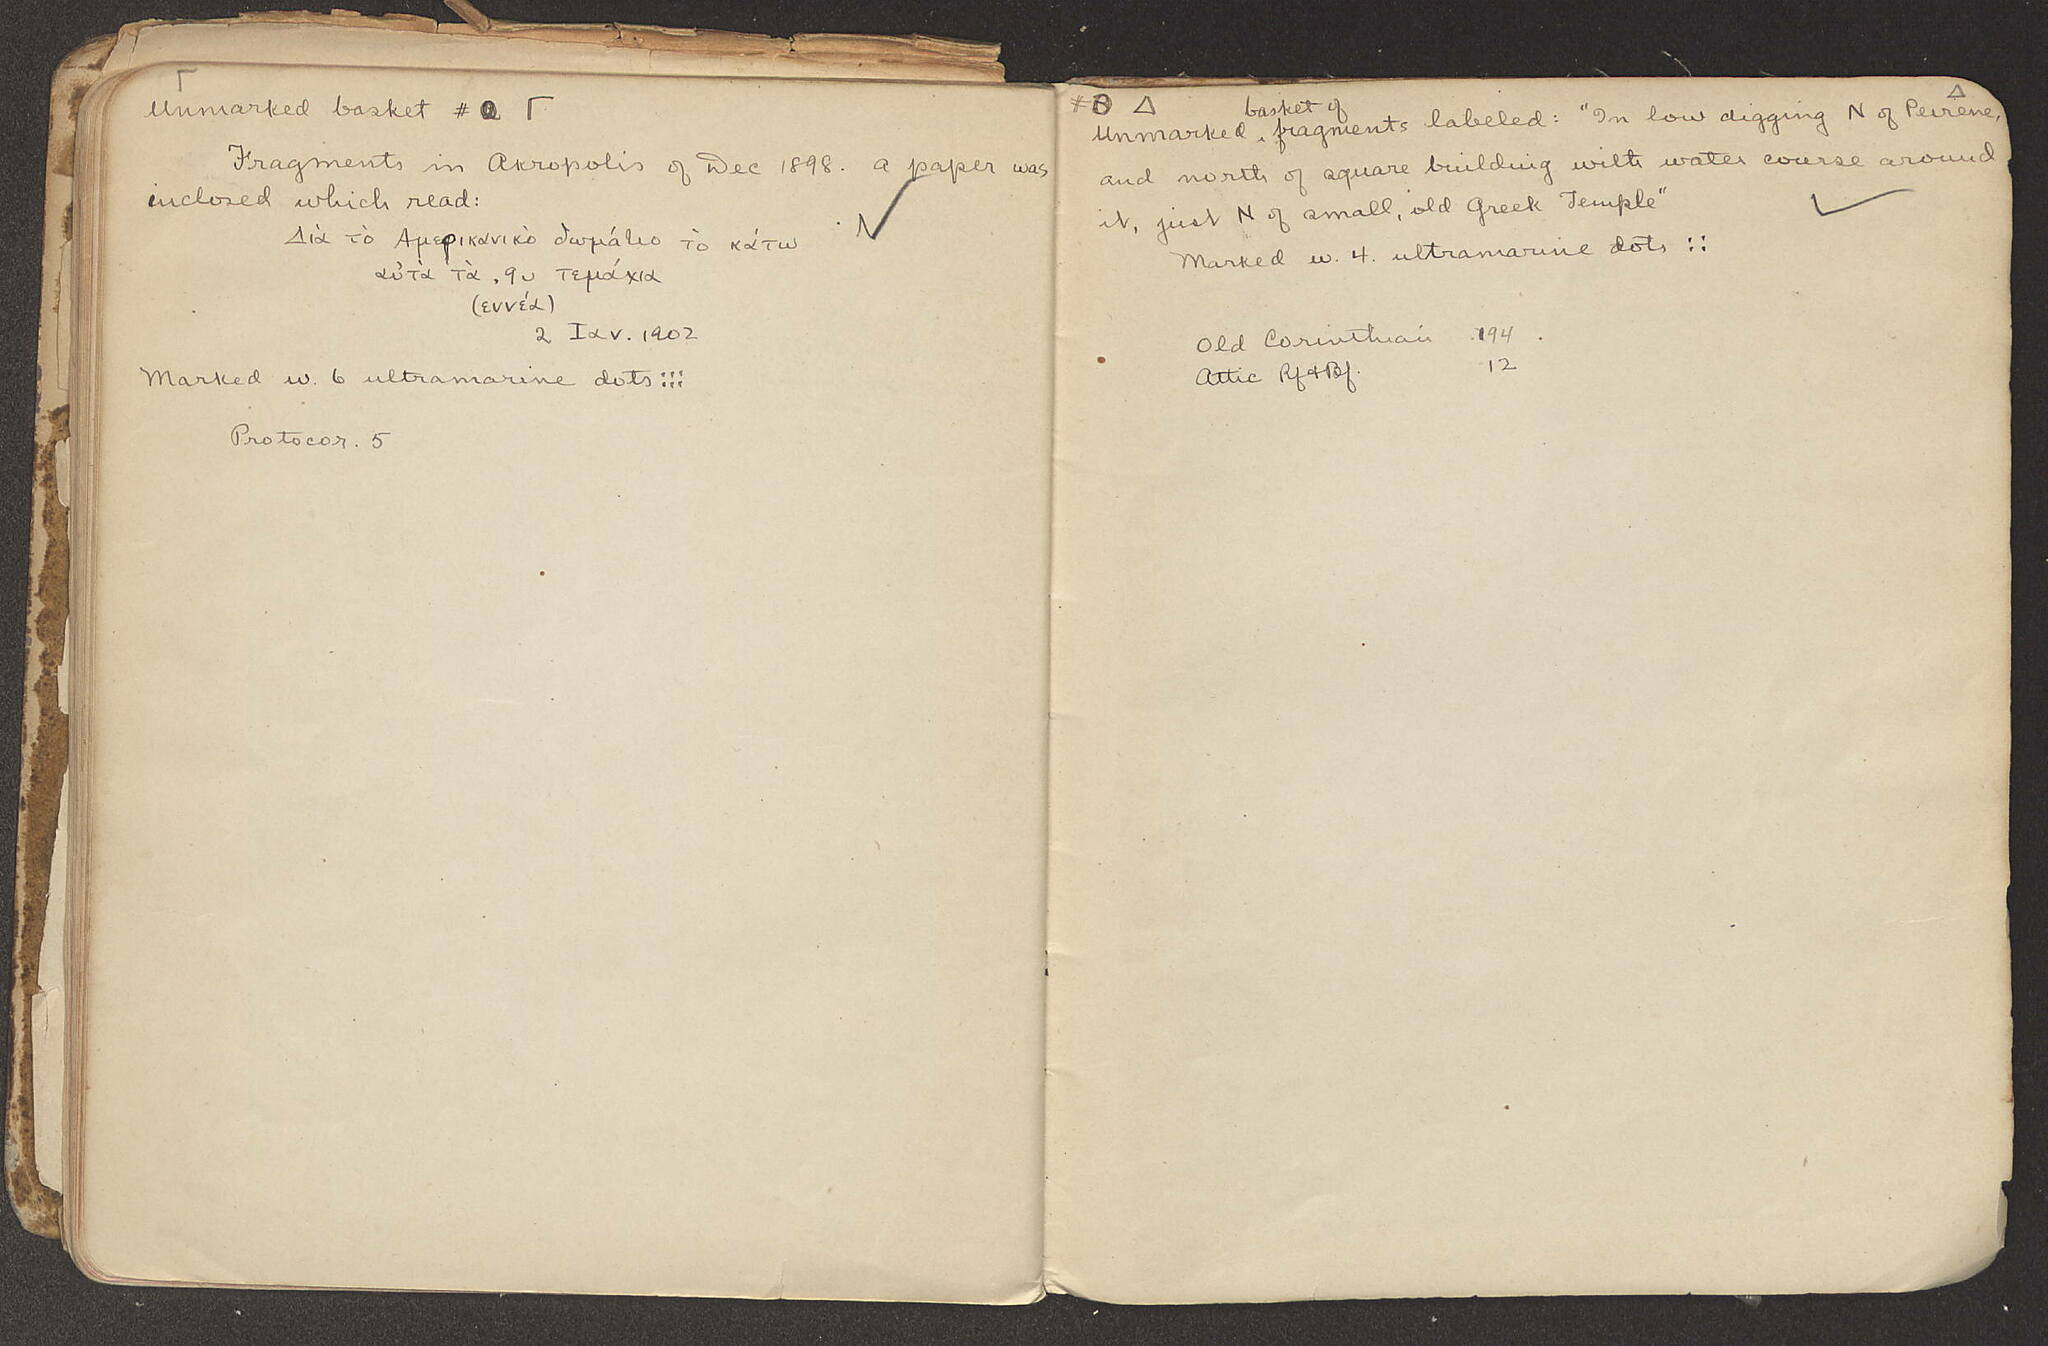 Γ
Unmarked basket #2 Γ
Fragments in Akropolis of Dec 1898. A paper was
inclosed which read:
Διὰ τὸ Αμερικανικὸ δωμάτιο τὸ κάτω
αὐτὰ τὰ 9 τεμάχια
(εννέα)
2 Ιαν. 1902
Marked w. 6 ultramarine dots :::
Protocor. 5
#3 Δ Δ
basket of
Unmarked fragments labeled: "In low digging N of Peirene,
and north of square building with water course around
it, just N of small, old Greek Temple"
Marked w. 4. ultramarine dots ::
Old Corinthian 194
Attic Rf & Bf. 12